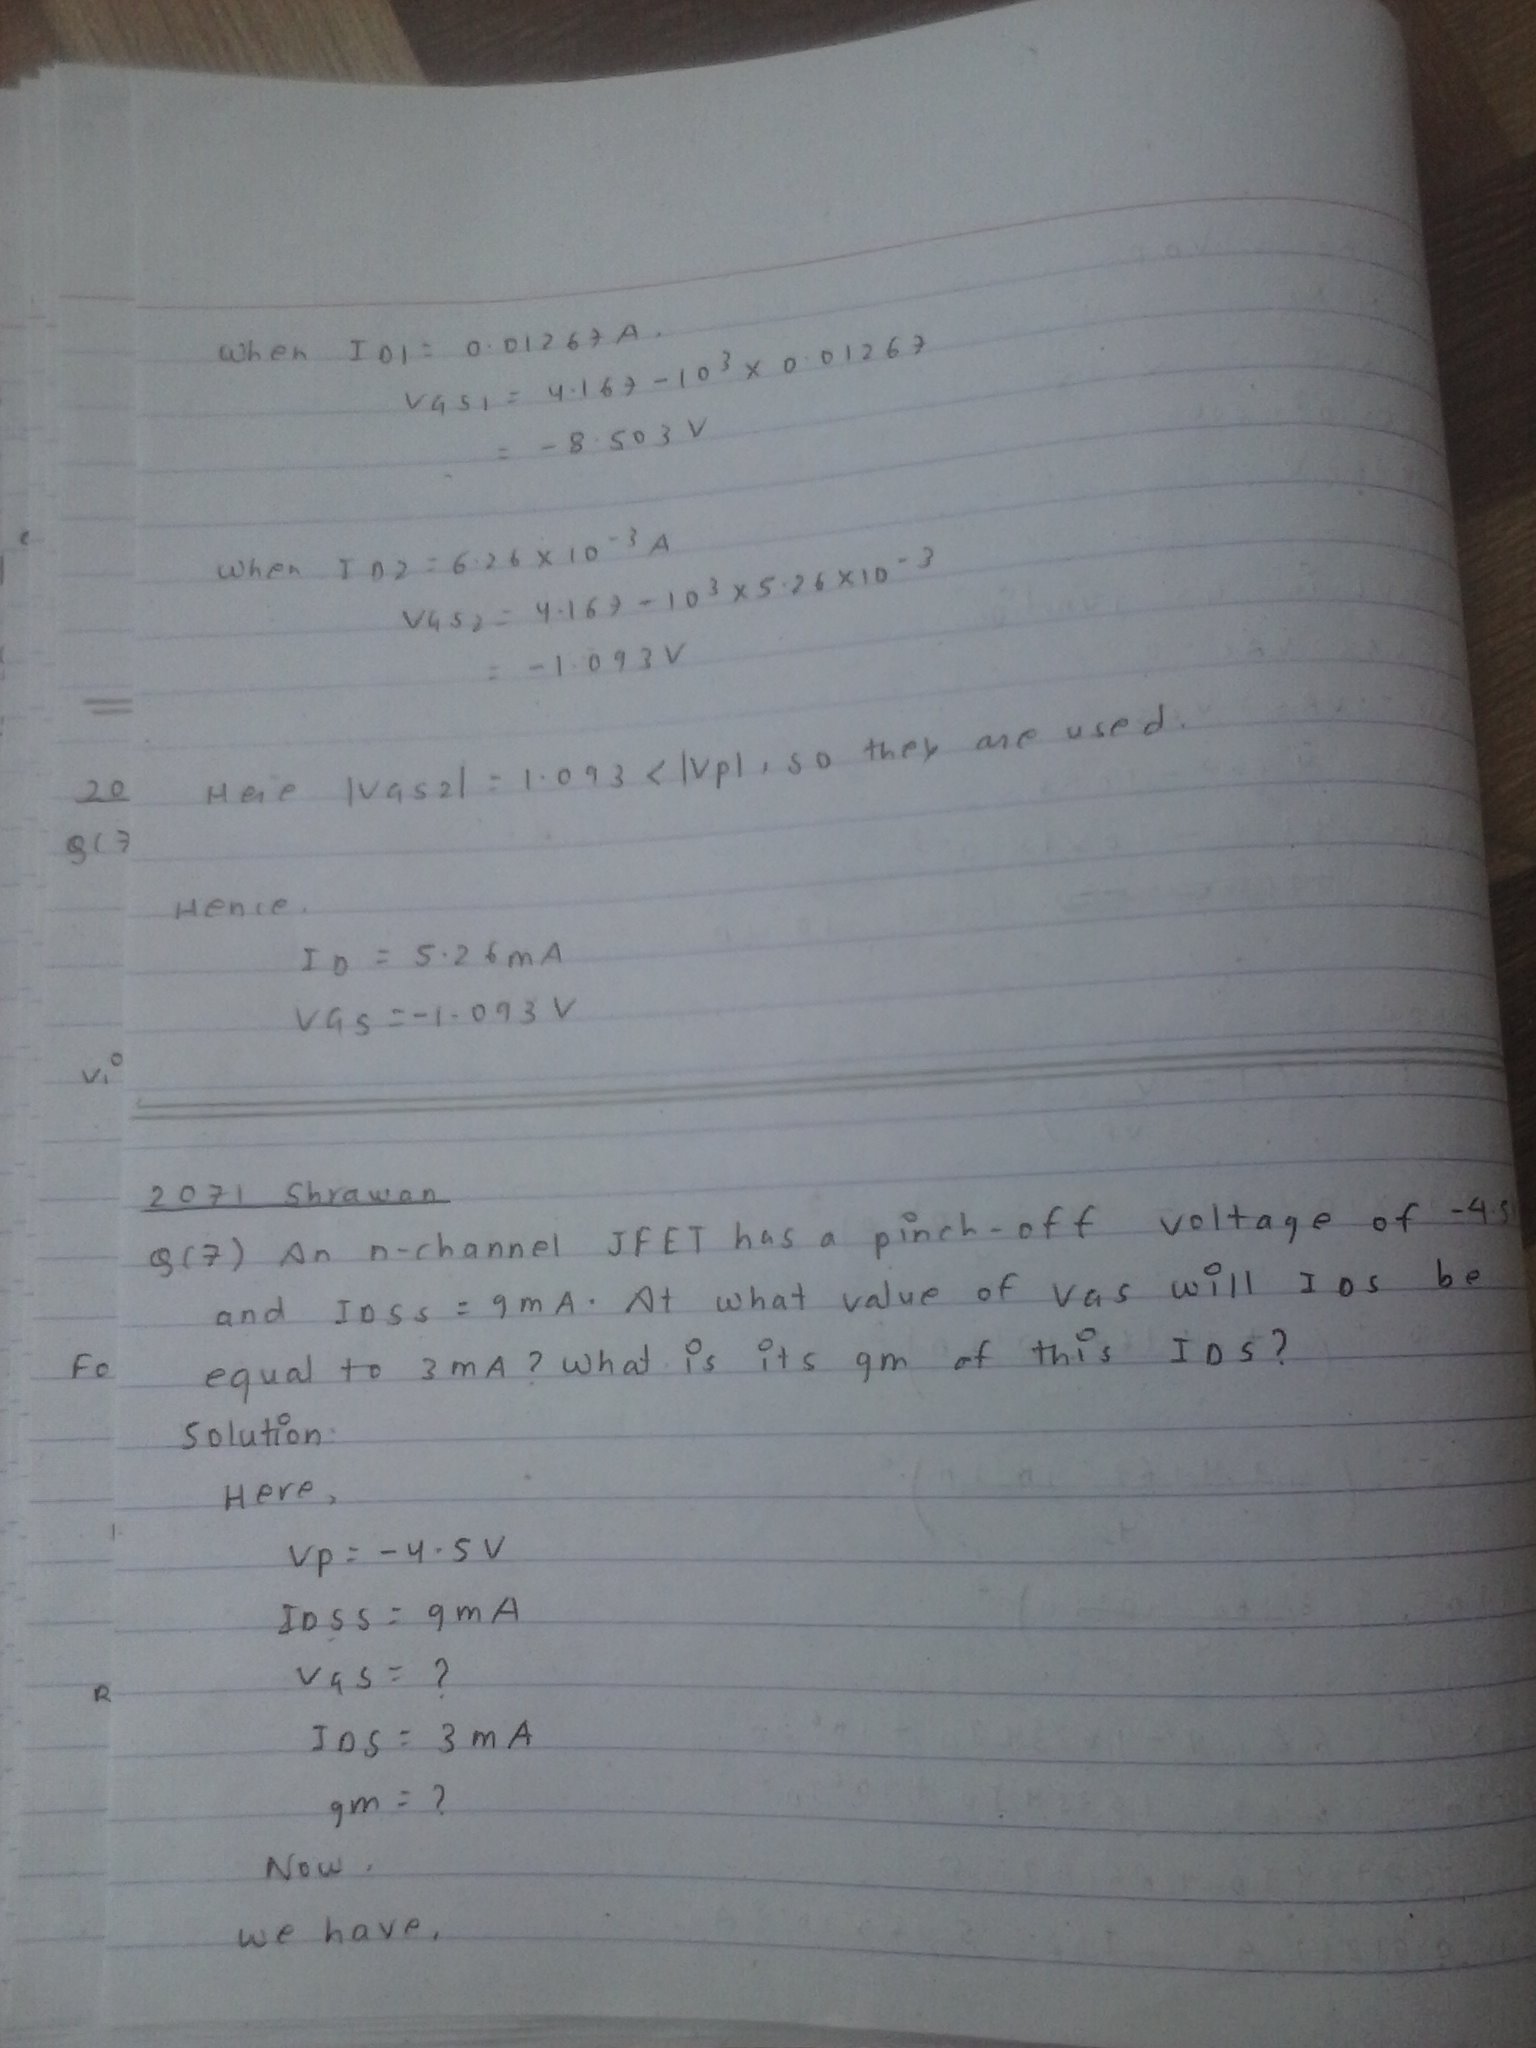 When ID1 = 0.01267A.
VGS1 = 4.167 - 10³ × 0.01267
= -8.503 V
When ID2 = 6.26 × 10⁻³ A
VGS2 = 4.167 - 10³ × 5.26 × 10⁻³
= -1.093 V
Here |VGS2| = 1.093 < |Vp|, so they are used.
20
Q(7
Hence,
ID = 5.26mA
VGS = -1.093 V
Vi
2071 Shrawan
Q(7) An n-channel JFET has a pinch-off voltage of -4.5
and IDSS = 9mA. At what value of VGS will IDS be
Fo
equal to 3mA? What is its gm of this IDS?
Solution:
Here,
Vp = -4.5 V
IDSS = 9mA
VGS = ?
R
IDS = 3mA
gm = ?
Now,
we have,